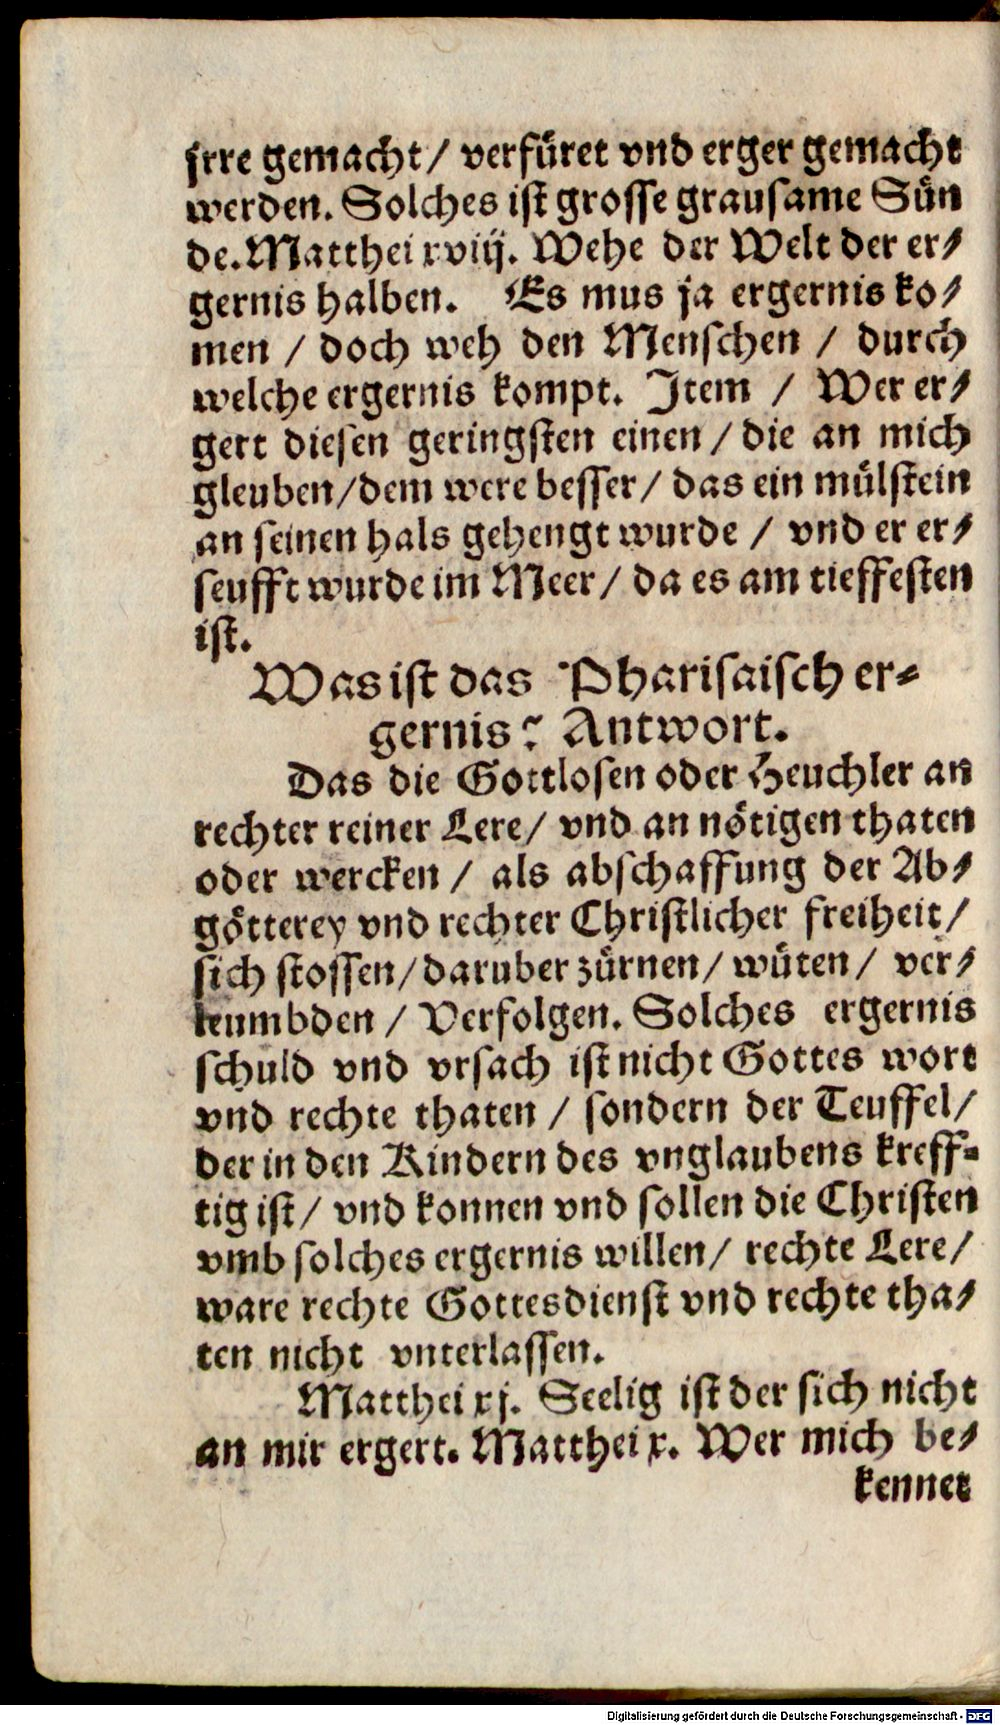 jrre gemacht / verfüret vnd erger gemacht
werden. Solches ist grosse grausame Sün
de. Matthei xviij. Wehe der Welt der er⸗
gernis halben. Es mus ja ergernis ko⸗
men / doch weh den Menschen / durch
welche ergernis kompt. Item / Wer er⸗
gert diesen geringsten einen / die an mich
gleuben / dem were besser / das ein mülstein
an seinen hals gehengt wurde / vnd er er⸗
seufft wurde im Meer / da es am tieffesten
ist.
Was ist das Pharisaisch er⸗
gernis? Antwort.
Das die Gottlosen oder Heuchler an
rechter reiner Lere / vnd an nötigen thaten
oder wercken / als abschaffung der Ab⸗
götterey vnd rechter Christlicher freiheit /
sich stossen / daruber zürnen / wüten / ver⸗
leumbden / Verfolgen. Solches ergernis
schuld vnd vrsach ist nicht Gottes wort
vnd rechte thaten / sondern der Teuffel /
der in den Kindern des vnglaubens kreff⸗
tig ist / vnd konnen vnd sollen die Christen
vmb solches ergernis willen / rechte Lere /
ware rechte Gottesdienst vnd rechte tha⸗
ten nicht vnterlassen.
Matthei xj. Seelig ist der sich nicht
an mir ergert. Matthei x. Wer mich be⸗
kennet
Digitalisierung gefördert durch die Deutsche Forschungsgemeinschaft - DFG